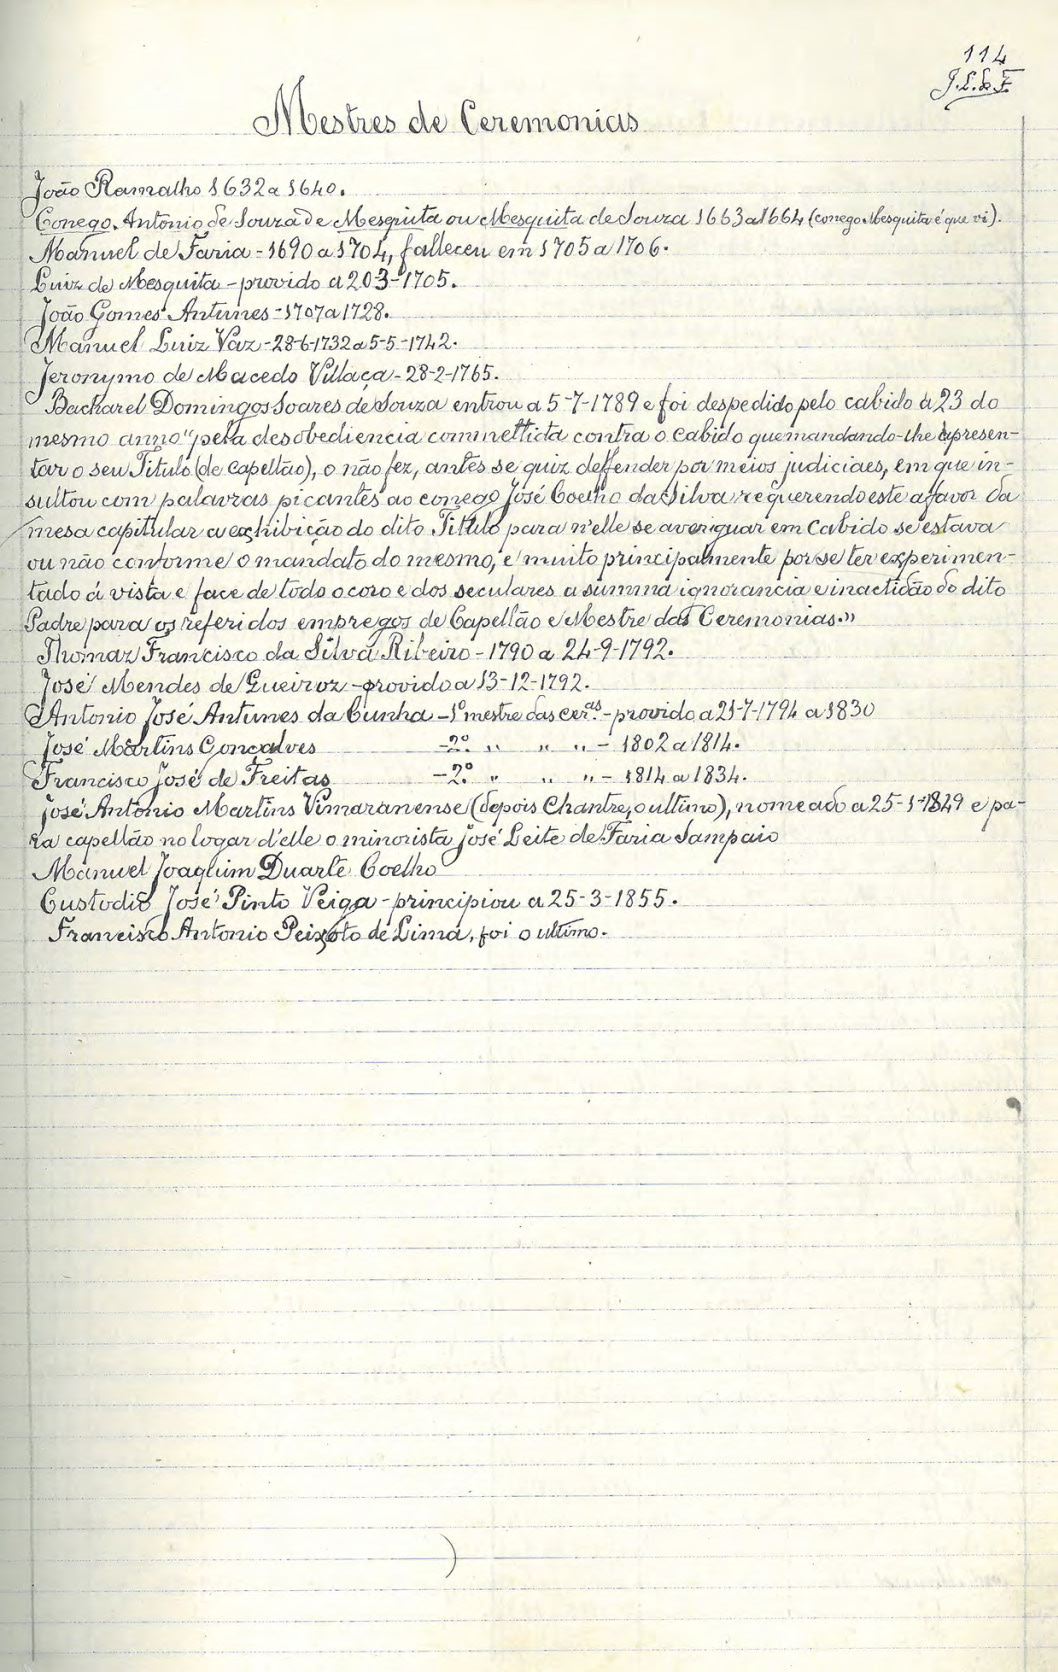 114
J.L. de F.
Mestres de Ceremonias
João Ramalho 1632 a 1640.
Conego Antonio de Souza de Mesquita ou Mesquita de Souza 1663 a 1664 (conego Mesquita é que vi).
Manuel de Faria - 1690 a 1704, falleceu em 1705 a 1706.
Luiz de Mesquita - provido a 20-3-1705.
João Gomes Antunes - 1707 a 1728.
Manuel Luiz Vaz - 28-6-1732 a 5-5-1742.
Jeronymo de Macedo Villaça - 28-2-1765.
Bacharel Domingos Soares de Souza entrou a 5-7-1789 e foi despedido pelo cabido a 23 do
mesmo anno "pela desobediencia commettida contra o Cabido que mandando-lhe apresen-
tar o seu Titulo (de capellão), o não fez, antes se quiz deffender por meios judiciaes, em que in-
sultou com palavras picantes ao conego José Coelho da Silva requerendo este a favor da
mesa capitular a exhibição do dito Titulo para n'elle se averiguar em Cabido se estava
ou não conforme o mandato do mesmo, e muito principalmente por se ter experimen-
tado á vista e face de todo o coro e dos seculares a summa ignorancia e inactidão do dito
Padre para os referidos empregos de Capellão e Mestre das Ceremonias.»
Thomaz Francisco da Silva Ribeiro - 1790 a 24-9-1792.
José Mendes de Queiroz - provido a 13-12-1792.
Antonio José Antunes da Cunha - 1º mestre das cer.as - provido a 21-7-1794 a 1830
José Martins Gonçalves - 2º " " " - 1802 a 1814.
Francisco José de Freitas - 2º " " " - 1814 a 1834.
José Antonio Martins Vimaranense (depois Chantre, o ultimo), nomeado a 25-1-1849 e pa-
ra capellão no logar d'elle o minorista José Leite de Faria Sampaio
Manuel Joaquim Duarte Coelho
Custodio José Pinto Veiga - principiou a 25-3-1855.
Francisco Antonio Peixoto de Lima, foi o ultimo.